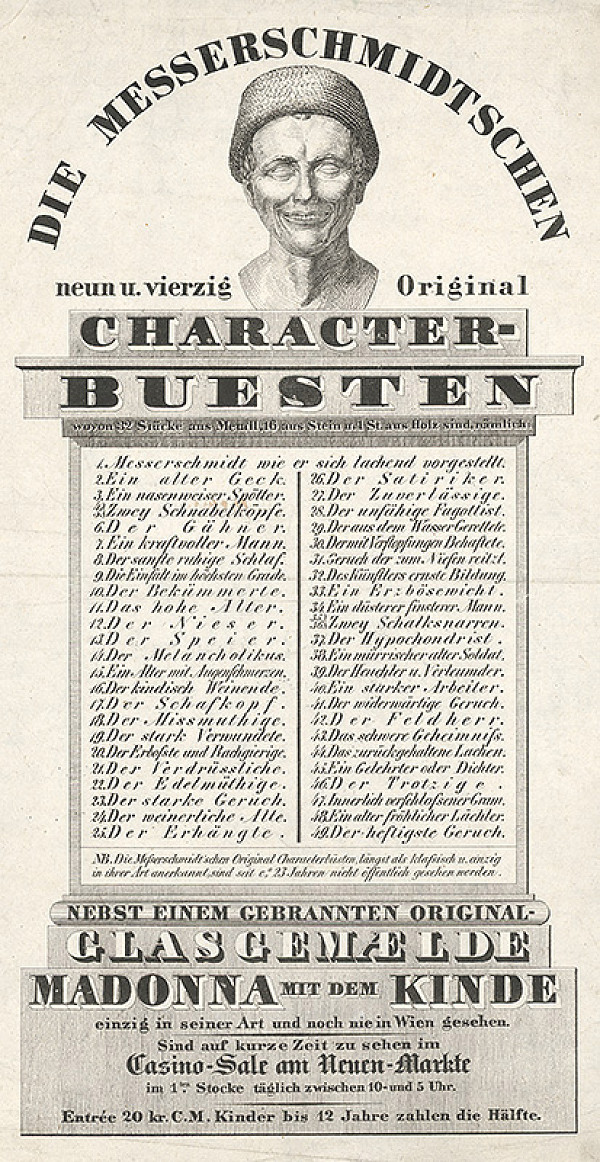 DIE MESSERSCHMIDTSCHEN
neun u. vierzig Original
CHARACTER-
BUESTEN
wovon 32 Stücke aus Metall, 16 aus Stein u. 1 St. aus Holz sind, nämlich:
1. Messerschmidt wie er sich lachend vorgestellt.
2. Ein alter Geck.
3. Ein nasenweiser Spötter.
4. 5. Zwey Schnabelköpfe.
6. Der Gähner.
7. Ein kraftvoller Mann.
8. Der sanfte ruhige Schlaf.
9. Die Einfalt im höchsten Grade.
10. Der Bekümmerte.
11. Das hohe Alter.
12. Der Nieser.
13. Der Speier.
14. Der Melancholikus.
15. Ein Alter mit Augenschmerzen.
16. Der kindisch Weinende.
17. Der Schafkopf.
18. Der Missmuthige.
19. Der stark Verwundete.
20. Der Erboste und Rachgierige.
21. Der Verdrüssliche.
22. Der Edelmüthige.
23. Der starke Geruch.
24. Der weinerliche Alte.
25. Der Erhängte.
26. Der Satiriker.
27. Der Zuverlässige.
28. Der unfähige Fagotist.
29. Der aus dem Wasser Gerettete.
30. Der mit Verstopfungen Behaftete.
31. Geruch der zum Niesen reitzt.
32. Des Künstlers ernste Bildung.
33. Ein Erzbösewicht.
34. Ein düsterer finsterer Mann.
35. 36. Zwey Schalksnarren.
37. Der Hypochondrist.
38. Ein mürrischer alter Soldat.
39. Der Heuchler u. Verleumder.
40. Ein starker Arbeiter.
41. Der widerwärtige Geruch.
42. Der Feldherr.
43. Das schwere Geheimniß.
44. Das zurückgehaltene Lachen.
45. Ein Gelehrter oder Dichter.
46. Der Trotzige.
47. Innerlich verschloßener Gram.
48. Ein alter fröhlicher Lächler.
49. Der heftigste Geruch.
NB. Die Meßerschmidt'schen Original Characterbüsten, längst als klassisch u. einzig
in ihrer Art anerkannt, sind seit c.ª 23 Jahren nicht öffentlich gesehen worden.
NEBST EINEM GEBRANNTEN ORIGINAL-
GLASGEMÆLDE
MADONNA MIT DEM KINDE
einzig in seiner Art und noch nie in Wien gesehen.
Sind auf kurze Zeit zu sehen im
Casino-Sale am Neuen-Markte
im 1ten Stocke täglich zwischen 10- und 5 Uhr.
Entrée 20 kr. C.M. Kinder bis 12 Jahre zahlen die Hälfte.